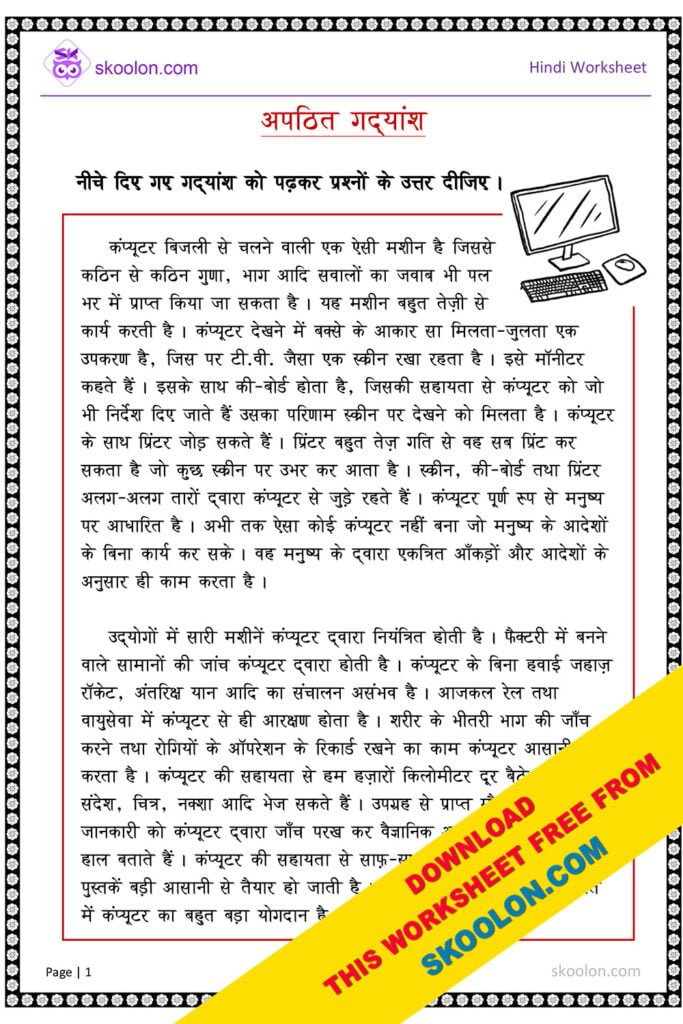 skoolon.com
Hindi Worksheet
अपठित गद्यांश
नीचे दिए गए गद्यांश को पढ़कर प्रश्नों के उत्तर दीजिए।
कंप्यूटर बिजली से चलने वाली एक ऐसी मशीन है जिससे
कठिन से कठिन गुणा, भाग आदि सवालों का जवाब भी पल
भर में प्राप्त किया जा सकता है। यह मशीन बहुत तेज़ी से
कार्य करती है। कंप्यूटर देखने में बक्से के आकार सा मिलता-जुलता एक
उपकरण है, जिस पर टी.वी. जैसा एक स्क्रीन रखा रहता है। इसे मॉनीटर
कहते हैं। इसके साथ की-बोर्ड होता है, जिसकी सहायता से कंप्यूटर को जो
भी निर्देश दिए जाते हैं उसका परिणाम स्क्रीन पर देखने को मिलता है। कंप्यूटर
के साथ प्रिंटर जोड़ सकते हैं। प्रिंटर बहुत तेज़ गति से वह सब प्रिंट कर
सकता है जो कुछ स्क्रीन पर उभर कर आता है। स्क्रीन, की-बोर्ड तथा प्रिंटर
अलग-अलग तारों द्वारा कंप्यूटर से जुड़े रहते हैं। कंप्यूटर पूर्ण रूप से मनुष्य
पर आधारित है। अभी तक ऐसा कोई कंप्यूटर नहीं बना जो मनुष्य के आदेशों
के बिना कार्य कर सके। वह मनुष्य के द्वारा एकत्रित आँकड़ों और आदेशों के
अनुसार ही काम करता है।
उद्योगों में सारी मशीनें कंप्यूटर द्वारा नियंत्रित होती है। फैक्टरी में बनने
वाले सामानों की जांच कंप्यूटर द्वारा होती है। कंप्यूटर के बिना हवाई जहाज़
रॉकेट, अंतरिक्ष यान आदि का संचालन असंभव है। आजकल रेल तथा
वायुसेवा में कंप्यूटर से ही आरक्षण होता है। शरीर के भीतरी भाग की जाँच
करने तथा रोगियों के ऑपरेशन के रिकार्ड रखने का काम कंप्यूटर आसानी
करता है। कंप्यूटर की सहायता से हम हज़ारों किलोमीटर दूर बैठे
संदेश, चित्र, नक्शा आदि भेज सकते हैं। उपग्रह से प्राप्त
जानकारी को कंप्यूटर द्वारा जाँच परख कर वैज्ञानिक
हाल बताते हैं। कंप्यूटर की सहायता से
पुस्तकें बड़ी आसानी से तैयार हो जाती है
में कंप्यूटर का बहुत बड़ा योगदान है
DOWNLOAD
THIS WORKSHEET FREE FROM
SKOOLON.COM
Page | 1
skoolon.com